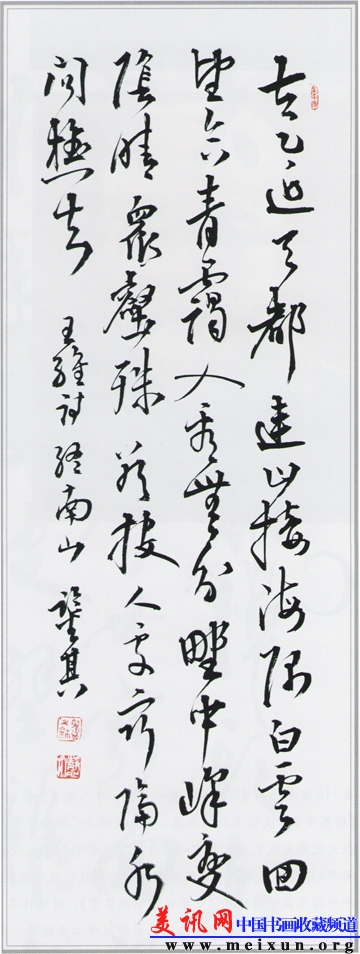 太乙近天都連山接海隅白雲回
望合青靄入看無分野中峰變
陰晴眾壑殊欲投人處宿隔水
問樵夫
王維詩終南山
美讯网 中国书画收藏频道
www.meixun.org